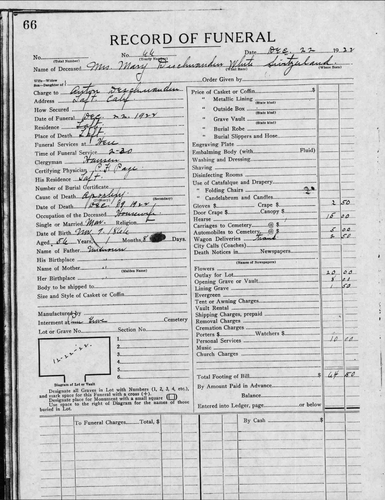 66
RECORD OF FUNERAL
No. 66 Date Dec. 22 1922
(Total Number) (Yearly Number)
Name of Deceased Mrs. Mary White Switzerland
(What Race) (Where Born)
Wife-Widow
Son-Daughter of Order Given By
Charge to Anton
Address Taft Calif
How Secured
Date of Funeral Dec 22 1922
Residence Taft
Place of Death Taft
Funeral Services at Here
Time of Funeral Service 2-30
Clergyman Hansen
Certifying Physician Page
His Residence Taft
Number of Burial Certificate
Cause of Death
(Primary) (Secondary)
Date of Death Dec 19 1922
Occupation of the Deceased Housewife
Single or Married Mar. Religion
Date of Birth Nov 9 1866
Aged 56 Years, 1 Months, Days
Name of Father Unknown
His Birthplace
Name of Mother
(Maiden Name)
Her Birthplace
Body to be shipped to
Size and Style of Casket or Coffin
Manufactured by
Interment at Cemetery
Lot or Grave No. Section No.
12-22-22
1.
2.
3.
4.
5.
6.
Diagram of Lot or Vault
Designate all Graves in Lot with Numbers (1, 2, 3, 4, etc.), and mark space for this Funeral with a cross (+).
Designate place for Monument with a small square
Use space to the right of Diagram for the names of those buried in Lot.
Price of Casket or Coffin $
" Metallic Lining
(State Kind)
" Outside Box
(State Kind)
" Grave Vault
(State Kind)
" Burial Robe
(State Kind)
" Burial Slippers and Hose
Engraving Plate
Embalming Body (with Fluid)
Washing and Dressing
Shaving
Disinfecting Rooms
Use of Catafalque and Drapery
" Folding Chairs
" Candelabrum and Candles
Gloves $ 2 50
Door Crape $ Canopy $
Hearse 15 00
Carriages to Cemetery @ $
Automobiles to Cemetery @ $
Wagon Deliveries 2 50
City Calls (Coaches)
Death Notices in Newspapers
(Names of Newspapers)
Flowers
Outlay for Lot
Opening Grave or Vault
Lining Grave
Evergreen
Tent or Awning Charges
Vault Rental
Shipping Charges, prepaid
Removal Charges
Cremation Charges
Porters $ Watchers $
Personal Services 10 00
Music
Church Charges
Total Footing of Bill $
By Amount Paid in Advance
Balance
Entered into Ledger, page or below
To Funeral Charges, Total $ By Cash $